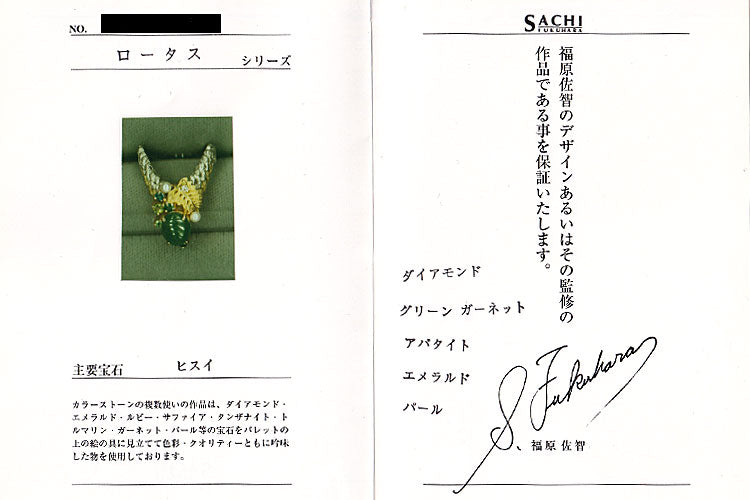 NO.
ロータス シリーズ
主要宝石 ヒスイ
カラーストーンの複数使いの作品は、ダイアモンド・
エメラルド・ルビー・サファイア・タンザナイト・ト
ルマリン・ガーネット・パール等の宝石をパレットの
上の絵の具に見立てて色彩・クオリティーともに吟味
した物を使用しております。
SACHI
FUKUHARA
福原佐智のデザインあるいはその監修の
作品である事を保証いたします。
ダイアモンド
グリーン ガーネット
アパタイト
エメラルド
パール
S. Fukuhara
、福原佐智